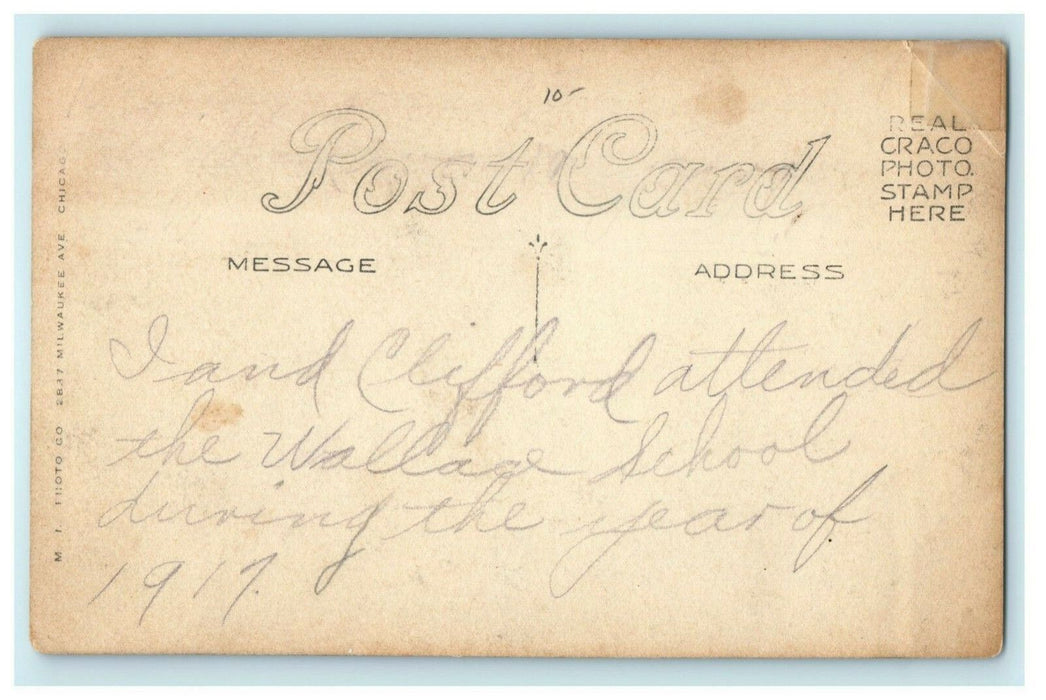 10-
Post Card
REAL
CRACO
PHOTO.
STAMP
HERE
MESSAGE
ADDRESS
I and Clifford attended
the Wallace School
during the year of
1917.
PHOTO CO 2837 MILWAUKEE AVE CHICAGO